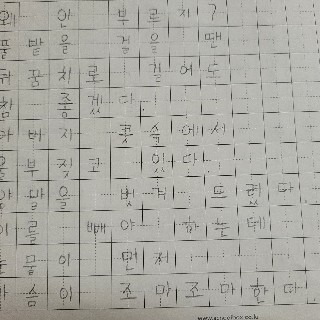 왜 안 부르지?
풀밭을 걸을 땐
뒤꿈치로 걸어도
참 좋겠다.
아버지 콧속에서
울부짖고 있다.
양말을 벗겨 뜨렸다
이를 빼야 하는데
눈물이 먼저
가슴이 조마조마한다